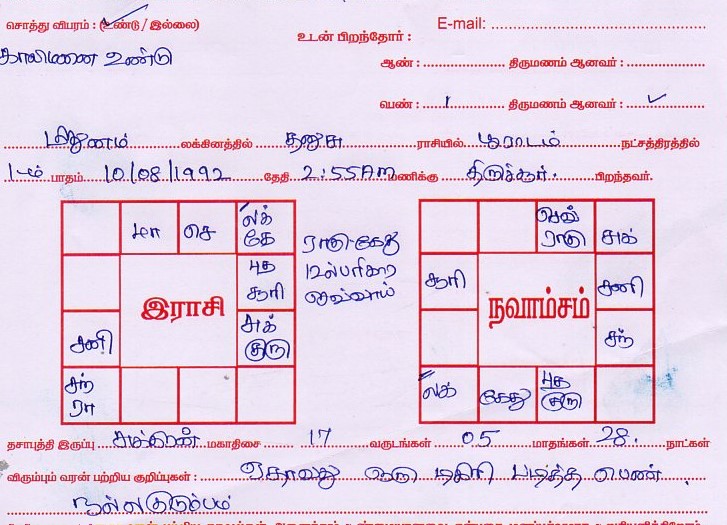 சொத்து விபரம் : (உண்டு / இல்லை)
E-mail:
காலிமனை உண்டு
உடன் பிறந்தோர் :
ஆண் : திருமணம் ஆனவர் :
பெண் : 1 திருமணம் ஆனவர் : ✓
மிதுனம் லக்கினத்தில் தனுசு ராசியில் பூராடம் நட்சத்திரத்தில்
1-ம் பாதம் 10/08/1992 தேதி 2:55 AM மணிக்கு திருச்சூர். பிறந்தவர்.
மா செ லக் கே
புத சூரி
இராசி
சனி சுக் குரு
சந் ரா
ராகு-கேது
பரிகார
செவ்வாய்
செவ் ராகு சுக்
சூரி சனி
நவாம்சம்
சந்
லக் கேது புத குரு
தசாபுத்தி இருப்பு சுக்கிரன் மகாதிசை 17 வருடங்கள் 05 மாதங்கள் 28 நாட்கள்
விரும்பும் வரன் பற்றிய குறிப்புகள் : ஏதாவது ஒரு டிகிரி படித்த பெண்
நல்ல குடும்பம்